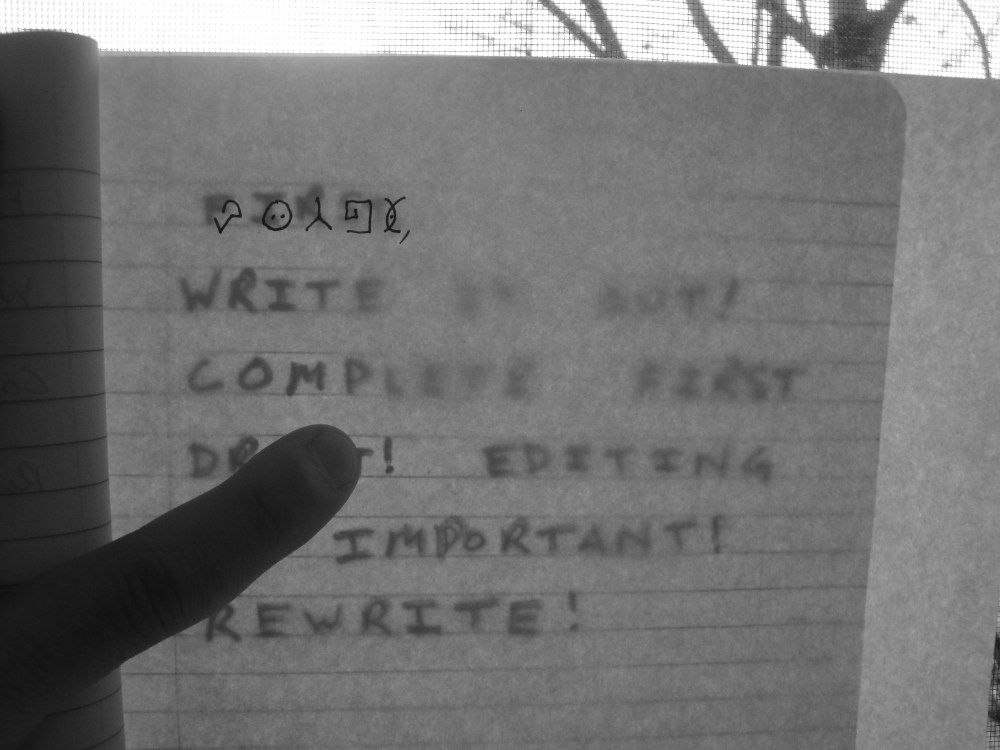 WRITE IT OUT!
COMPLETE FIRST
EDITING
IMPORTANT!
REWRITE!